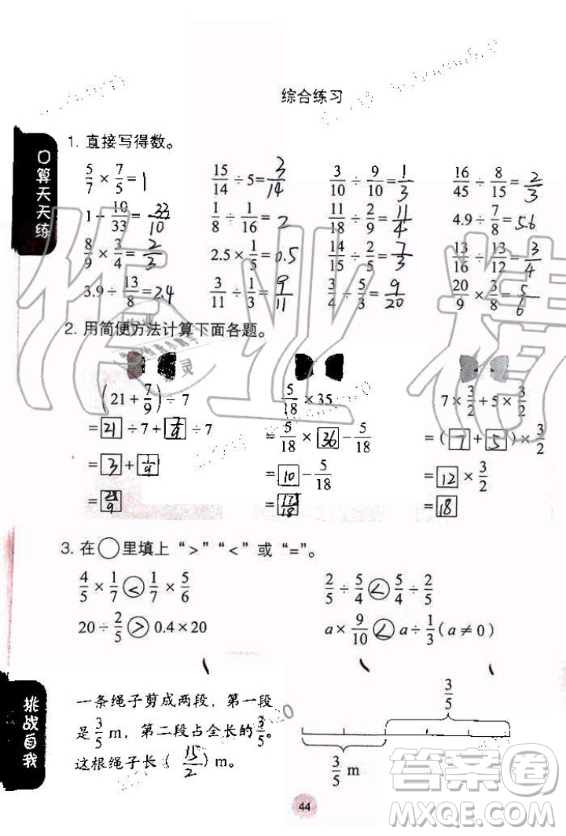 综合练习
口算天天练
1. 直接写得数。
5/7 × 7/5 = 1  15/14 ÷ 5 = 3/14  3/10 ÷ 9/10 = 1/3  16/45 ÷ 8/15 = 2/3
1 ÷ 10/33 = 33/10  1/8 ÷ 1/16 = 2  11/18 ÷ 2/9 = 11/4  4.9 ÷ 7/8 = 5.6
8/9 × 3/4 = 2/3  2.5 × 1/5 = 0.5  7/3  13/16 ÷ 13/12 = 3/4
3.9 ÷ 13/8 = 2.4  3/11 ÷ 1/3 = 9/11  3/4 ÷ 5/3 = 9/20  20/9 × 3/8 = 5/6
2. 用简便方法计算下面各题。
(21 + 7/9) ÷ 7  5/18 × 35  7 × 3/2 + 5 × 3/2
= 21 ÷ 7 + 7/9 ÷ 7  = 5/18 × 36 − 5/18  = (7 + 5) × 3/2
= 3 + 1/9  = 10 − 5/18  = 12 × 3/2
= 28/9  = 175/18  = 18
3. 在○里填上“>”“<”或“=”。
4/5 × 1/7 < 1/7 × 5/6  2/5 ÷ 5/4 < 5/4 ÷ 2/5
20 ÷ 2/5 > 0.4 × 20  a × 9/10 < a ÷ 1/3 (a ≠ 0)
挑战自我
一条绳子剪成两段，第一段
是 3/5 m，第二段占全长的 3/5。
这根绳子长( 15/2 )m。
3/5
3/5 m
44
作业精灵
答案圈
MXQE.COM